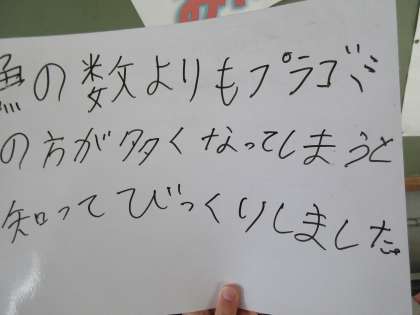 魚の数よりもプラゴミ
の方が多くなってしまうと
知ってびっくりしました